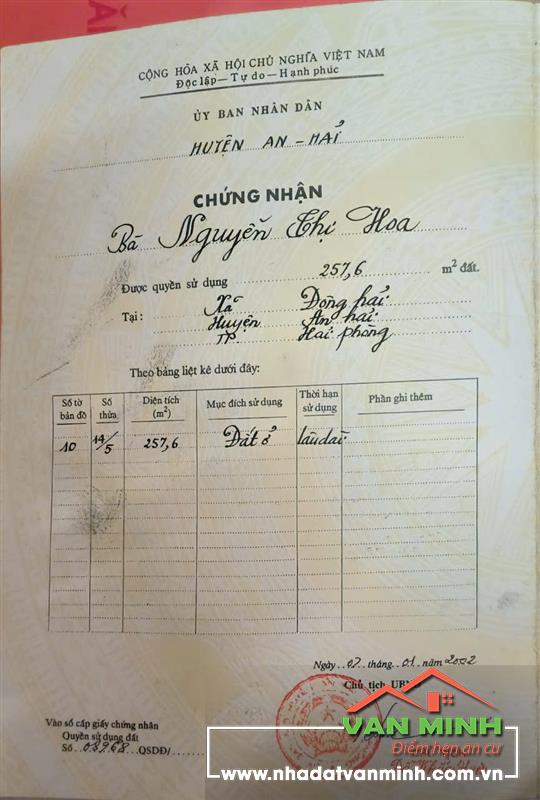 CỘNG HÒA XÃ HỘI CHỦ NGHĨA VIỆT NAM
Độc lập — Tự do — Hạnh phúc
ỦY BAN NHÂN DÂN
HUYỆN AN - HẢI
CHỨNG NHẬN
Bà Nguyễn Thị Hoa
Được quyền sử dụng 257,6 m² đất.
Tại: Xã Đông hải
Huyện An hải
TP. Hải phòng
Theo bảng liệt kê dưới đây:
Số tờ bản đồ Số thửa Diện tích (m²) Mục đích sử dụng Thời hạn sử dụng Phần ghi thêm
10 14/5 257,6 Đất ở lâu dài
Ngày 07 tháng 01 năm 2002
Chủ tịch
Vào sổ cấp giấy chứng nhận
Quyền sử dụng đất
Số QSDĐ/
VAN MINH
Điểm hẹn an cư
www.nhadatvanminh.com.vn